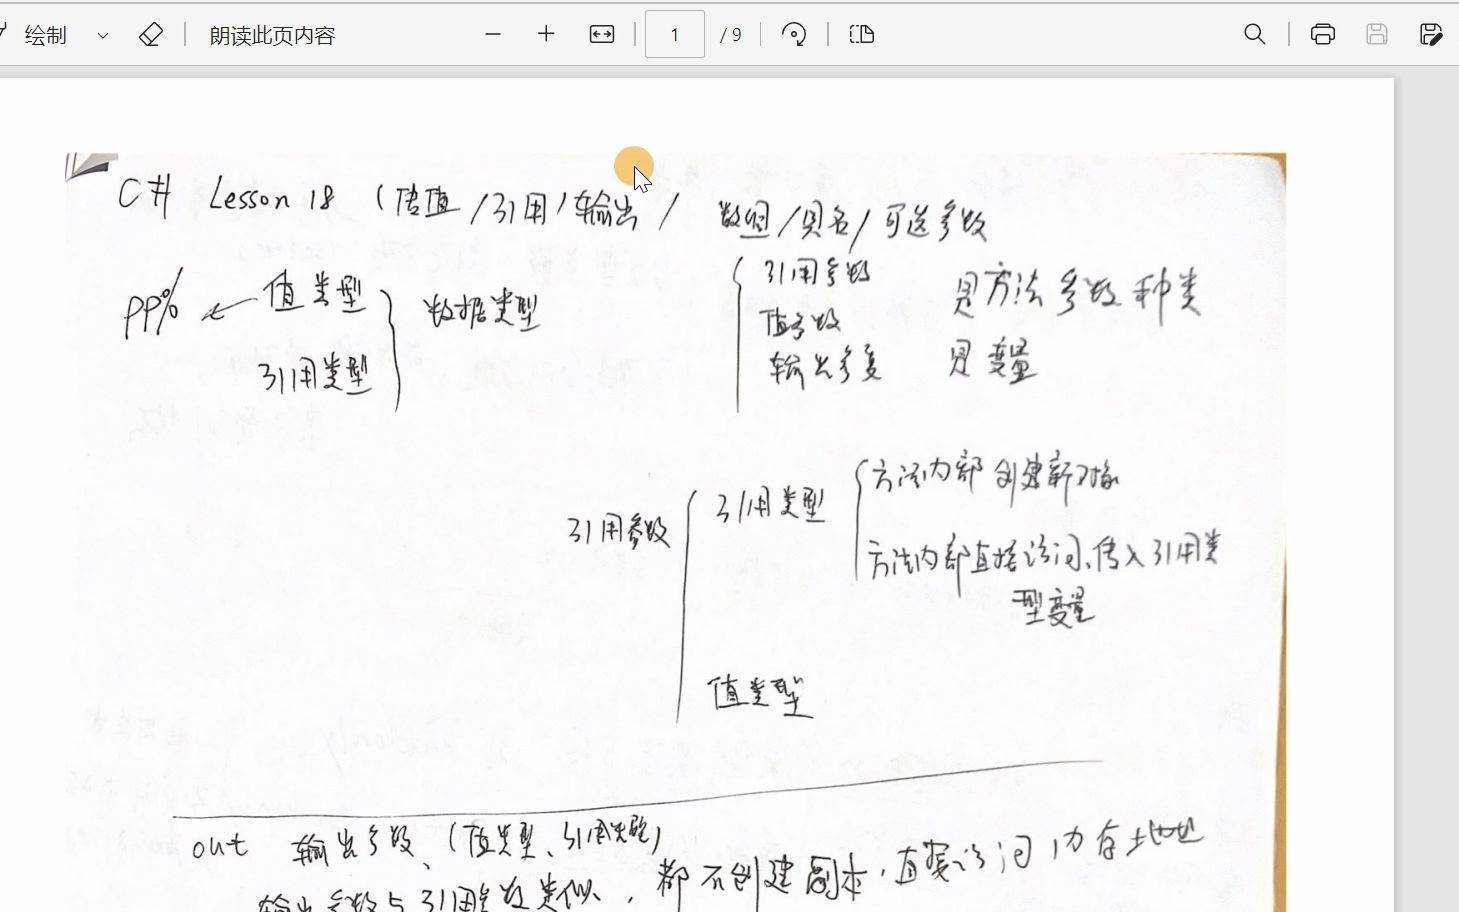 绘制 朗读此页内容 1 / 9
C# Lesson 18 (值 / 引用 / 输出 / 数组 / 具名 / 可选参数
PP% ← 值类型
引用类型
数据类型
引用参数
值参数
输出参数
是方法参数种类
是变量
引用参数
引用类型
方法内部创建新对象
方法内部直接访问、传入引用类
型变量
值类型
out 输出参数、(值类型、引用类型)
输出参数与引用参数类似, 都不创建副本, 直接访问内存地址